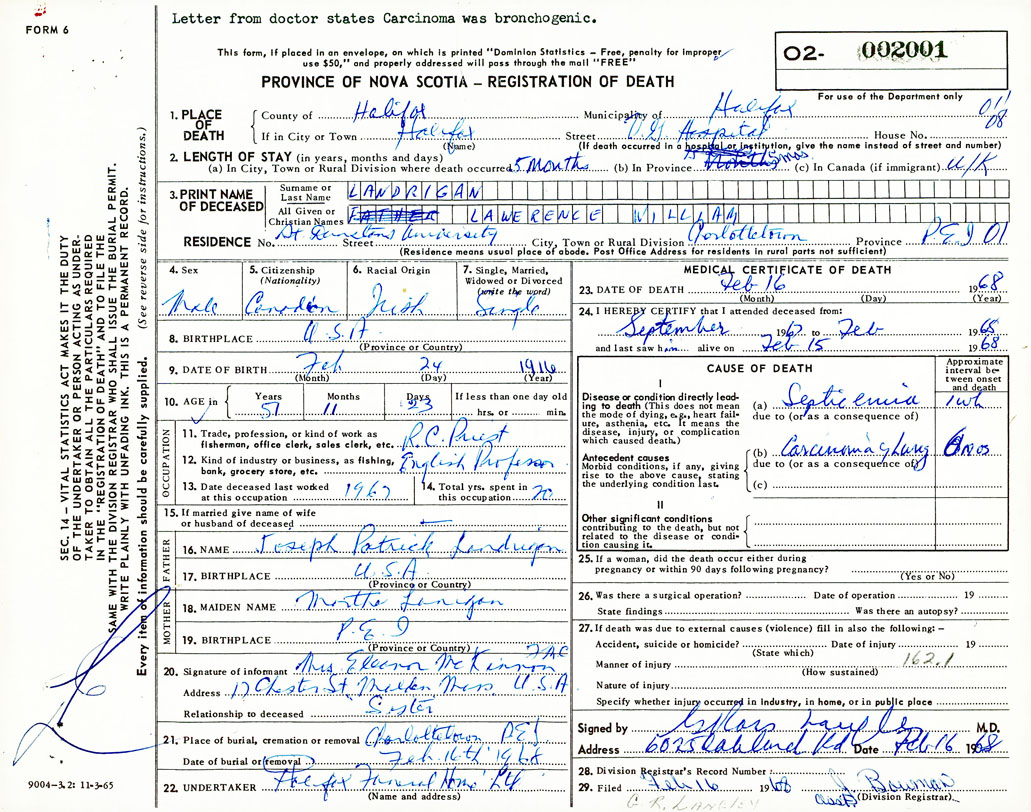 Letter from doctor states Carcinoma was bronchogenic.
FORM 6
This form, if placed in an envelope, on which is printed "Dominion Statistics – Free, penalty for improper
use $50," and properly addressed will pass through the mail "FREE"
O2- 002001
PROVINCE OF NOVA SCOTIA – REGISTRATION OF DEATH
For use of the Department only
1. PLACE OF DEATH
County of Halifax Municipality of Halifax
If in City or Town Halifax Street V.G. Hospital House No.
(Name) (If death occurred in a hospital or institution, give the name instead of street and number)
08
2. LENGTH OF STAY (in years, months and days)
(a) In City, Town or Rural Division where death occurred 5 Months (b) In Province 5 mos (c) In Canada (if immigrant) U/K
3. PRINT NAME OF DECEASED
Surname or Last Name LANDRIGAN
All Given or Christian Names FATHER LAWERENCE WILLIAM
RESIDENCE No. St Dunstans University Street City, Town or Rural Division Charlottetown Province P.E.I 01
(Residence means usual place of abode. Post Office Address for residents in rural parts not sufficient)
4. Sex Male
5. Citizenship (Nationality) Canadian
6. Racial Origin Irish
7. Single, Married, Widowed or Divorced (write the word) Single
8. BIRTHPLACE U.S.A
(Province or Country)
9. DATE OF BIRTH Feb 24 1916
(Month) (Day) (Year)
10. AGE in Years 51 Months 11 Days 23 If less than one day old hrs. or min.
OCCUPATION
11. Trade, profession, or kind of work as fisherman, office clerk, sales clerk, etc. R.C. Priest
12. Kind of industry or business, as fishing, bank, grocery store, etc. English Professor
13. Date deceased last worked at this occupation 1967
14. Total yrs. spent in this occupation 20
15. If married give name of wife or husband of deceased —
FATHER
16. NAME Joseph Patrick Landrigan
17. BIRTHPLACE U.S.A
(Province or Country)
MOTHER
18. MAIDEN NAME Martha Lanigan
19. BIRTHPLACE P.E.I
(Province or Country)
20. Signature of informant Mrs. Eleanor McKinnon
Address 17 Chester St. Malden Mass U.S.A
Relationship to deceased Sister
21. Place of burial, cremation or removal Charlottetown PEI
Date of burial or removal Feb 16th 1968
22. UNDERTAKER Halifax Funeral Home Ltd
(Name and address)
MEDICAL CERTIFICATE OF DEATH
23. DATE OF DEATH Feb 16 1968
(Month) (Day) (Year)
24. I HEREBY CERTIFY that I attended deceased from:
September 1967 to Feb 1968
and last saw him alive on Feb 15 1968
CAUSE OF DEATH
Approximate interval between onset and death
I
Disease or condition directly leading to death (This does not mean the mode of dying, e.g., heart failure, asthenia, etc. It means the disease, injury, or complication which caused death.)
(a) Septicemia 1 wk
due to (or as a consequence of)
Antecedent causes
Morbid conditions, if any, giving rise to the above cause, stating the underlying condition last.
(b) Carcinoma of Lung
due to (or as a consequence of)
(c)
II
Other significant conditions contributing to the death, but not related to the disease or condition causing it.
25. If a woman, did the death occur either during pregnancy or within 90 days following pregnancy?
(Yes or No)
26. Was there a surgical operation? Date of operation 19
State findings Was there an autopsy?
27. If death was due to external causes (violence) fill in also the following: –
Accident, suicide or homicide? Date of injury 19
(State which)
Manner of injury 162.1
(How sustained)
Nature of injury
Specify whether injury occurred in industry, in home, or in public place
Signed by M.D.
Address 6025 Oakland Rd Date Feb 16 1968
28. Division Registrar's Record Number:
29. Filed Feb 16 1968 J. Bowman
(Division Registrar)
SEC. 14 – VITAL STATISTICS ACT MAKES IT THE DUTY
OF THE UNDERTAKER OR PERSON ACTING AS UNDER-
TAKER TO OBTAIN ALL THE PARTICULARS REQUIRED
IN THE "REGISTRATION OF DEATH" AND TO FILE THE
SAME WITH THE DIVISION REGISTRAR WHO SHALL ISSUE THE BURIAL PERMIT.
WRITE PLAINLY WITH UNFADING INK. THIS IS A PERMANENT RECORD.
Every item of information should be carefully supplied. (See reverse side for instructions.)
9004-3.2: 11-3-65